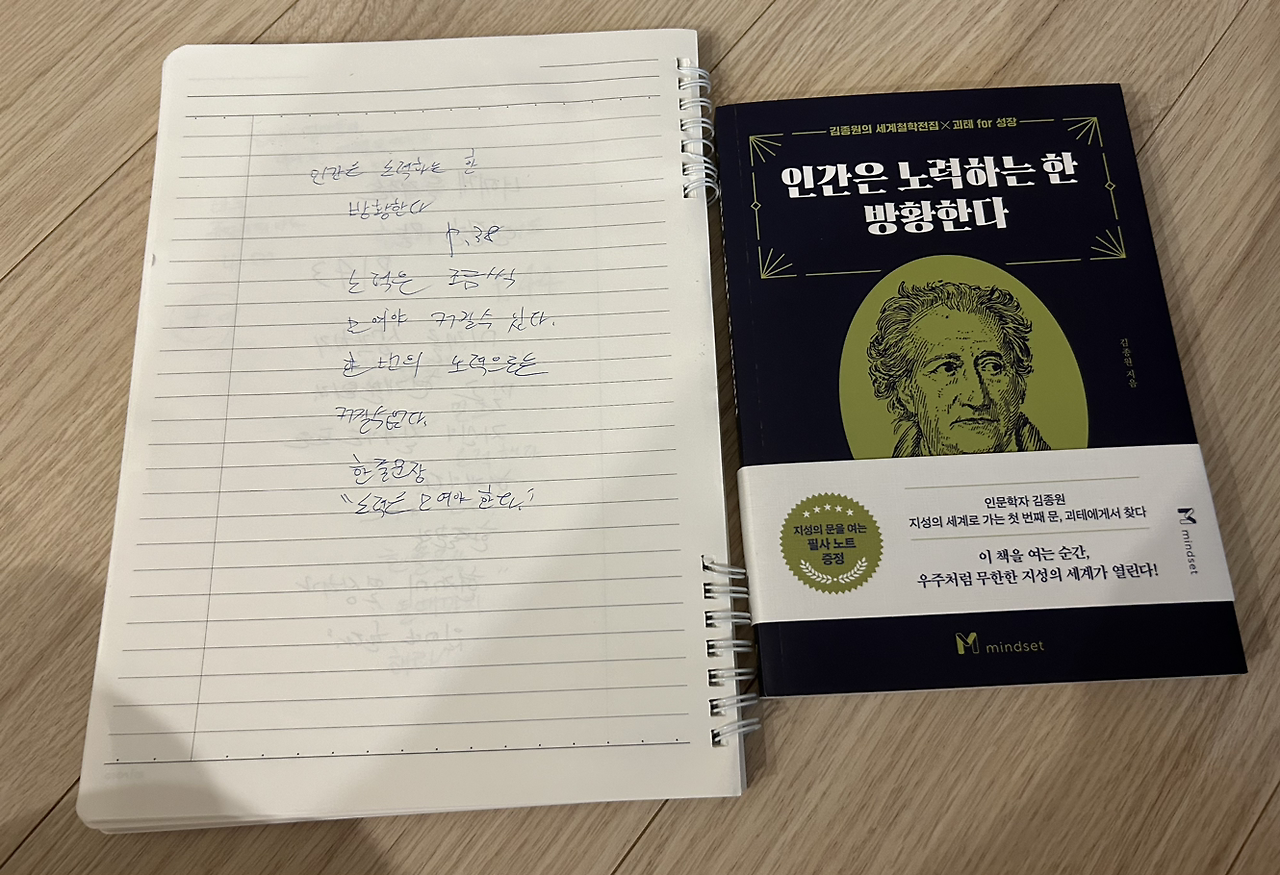 인간은 노력하는 한
방황한다
p.38
노력은 조금씩
모여야 커질수 있다.
한 번의 노력으로는
커질수없다.
한줄문장
"노력은 모여야 한다."
김종원의 세계철학전집×괴테 for 성장
인간은 노력하는 한
방황한다
김종원 지음
지성의 문을 여는
필사 노트
증정
인문학자 김종원
지성의 세계로 가는 첫 번째 문, 괴테에게서 찾다
이 책을 여는 순간,
우주처럼 무한한 지성의 세계가 열린다!
mindset
mindset